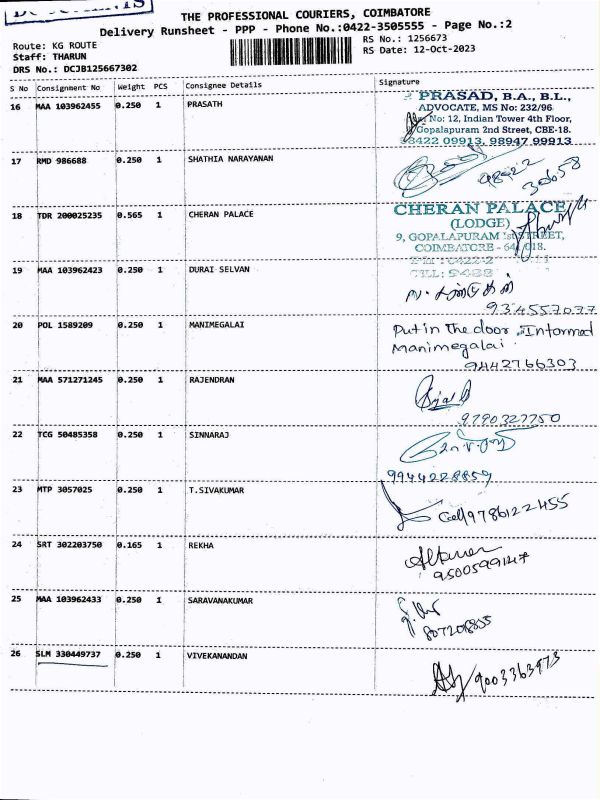 THE PROFESSIONAL COURIERS, COIMBATORE
Delivery Runsheet - PPP - Phone No.:0422-3505555 - Page No.:2
Route: KG ROUTE
RS No.: 1256673
Staff: THARUN
RS Date: 12-Oct-2023
DRS No.: DCJB125667302
S No Consignment No Weight PCS Consignee Details Signature
16 MAA 103962455 0.250 1 PRASATH
PRASAD, B.A., B.L.,
ADVOCATE, MS No: 232/96
No: 12, Indian Tower 4th Floor,
Gopalapuram 2nd Street, CBE-18.
98422 09913, 98947 99913
17 RMD 986688 0.250 1 SHATHIA NARAYANAN
98422
30658
18 TDR 200025235 0.565 1 CHERAN PALACE
CHERAN PALACE
(LODGE)
9, GOPALAPURAM Ist STREET,
COIMBATORE - 641 018.
19 MAA 103962423 0.250 1 DURAI SELVAN
934557037
20 POL 1589209 0.250 1 MANIMEGALAI
Put in the door. Informed
Manimegalai.
9442766303
21 MAA 571271245 0.250 1 RAJENDRAN
9790327750
22 TCG 50485358 0.250 1 SINNARAJ
9944228859
23 MTP 3057025 0.250 1 T.SIVAKUMAR
Cell 9786122455
24 SRT 302203750 0.165 1 REKHA
25 MAA 103962433 0.250 1 SARAVANAKUMAR
26 SLM 330449737 0.250 1 VIVEKANANDAN
9003363973